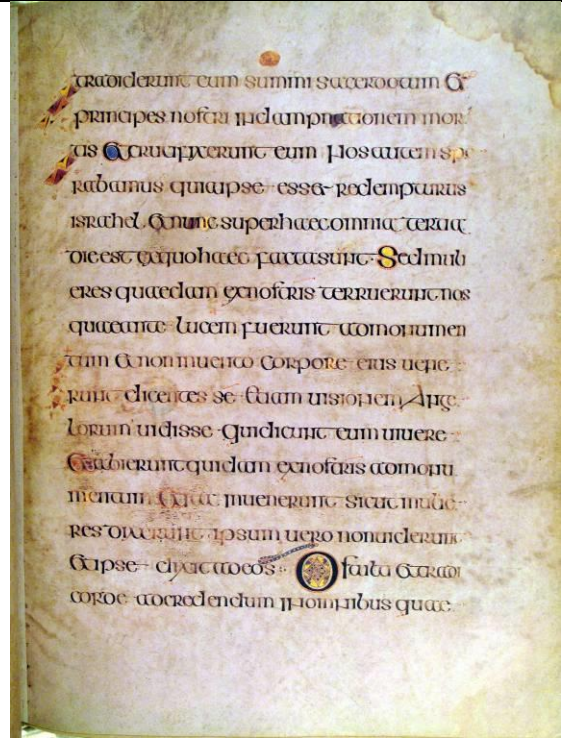 tradiderunt eum summi sacerdotum et
principes nostri in dampnationem mor
tis et crucifixerunt eum Nos autem spe
rabamus quia ipse esset redempturus
israhel et nunc super haec omnia tertia
die est ex quo haec facta sunt Sed muli
eres quaedam ex nostris terruerunt nos
quae ante lucem fuerunt ad monumen
tum et non invento corpore eius vene
runt dicentes se etiam visionem Ange
lorum vidisse qui dicunt eum vivere
Et abierunt quidam ex nostris ad monu
mentum et ita invenerunt sicut mulie
res dixerunt ipsum vero non viderunt
Et ipse dixit ad eos O stulti et tardi
corde ad credendum in omnibus quae